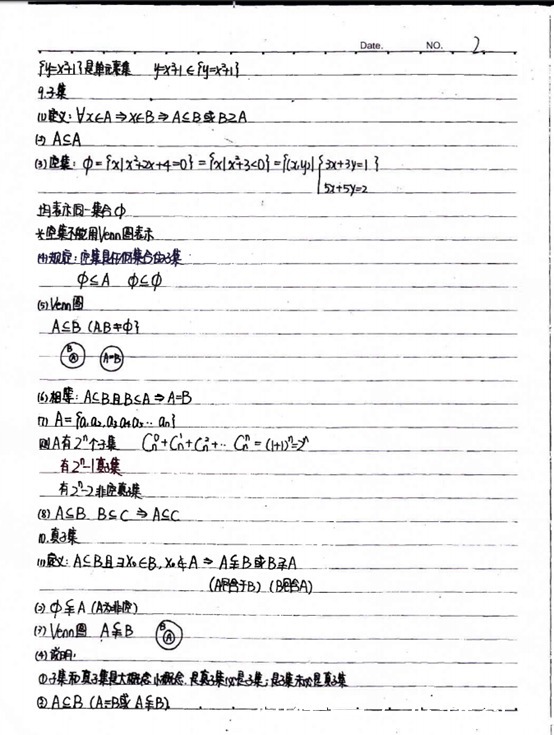 Date. NO. 2
{y=x²+1}是单元素集 y=x²+1∈{y=x²+1}
9.子集
(1)定义:∀x∈A⇒x∈B⇒A⊆B或B⊇A
(2) A⊆A
(3)空集:φ={x|x²+2x+4=0}={x|x²+3<0}={(x,y)|{3x+3y=1}
5x+5y=2
均表示同一集合φ
*空集不能用Venn图表示
(4)规定:空集是任何集合的子集
φ⊆A φ⊆φ
(5)Venn图
A⊆B (A.B≠φ}
B A A=B
(6)相等:A⊆B且B⊆A⇒A=B
(7) A={a₁a₂.a₃a₄a₅...aₙ}
则A有2ⁿ个子集 Cₙ⁰+Cₙ¹+Cₙ²+...Cₙⁿ=(1+1)ⁿ=2ⁿ
有2ⁿ-1真子集
有2ⁿ-2非空真子集
(8) A⊆B. B⊆C ⇒ A⊆C
10.真子集
(1)定义:A⊆B且∃x₀∈B,x₀∉A ⇒ A⫋B或B⫌A
(A包含于B) (B包含A)
(2) φ⫋A (A为非空)
(3) Venn图 A⫋B B A
(4)说明:
①子集和真子集是大概念小概念.是真子集必是子集;是子集未必是真子集
② A⊆B (A=B或A⫋B)